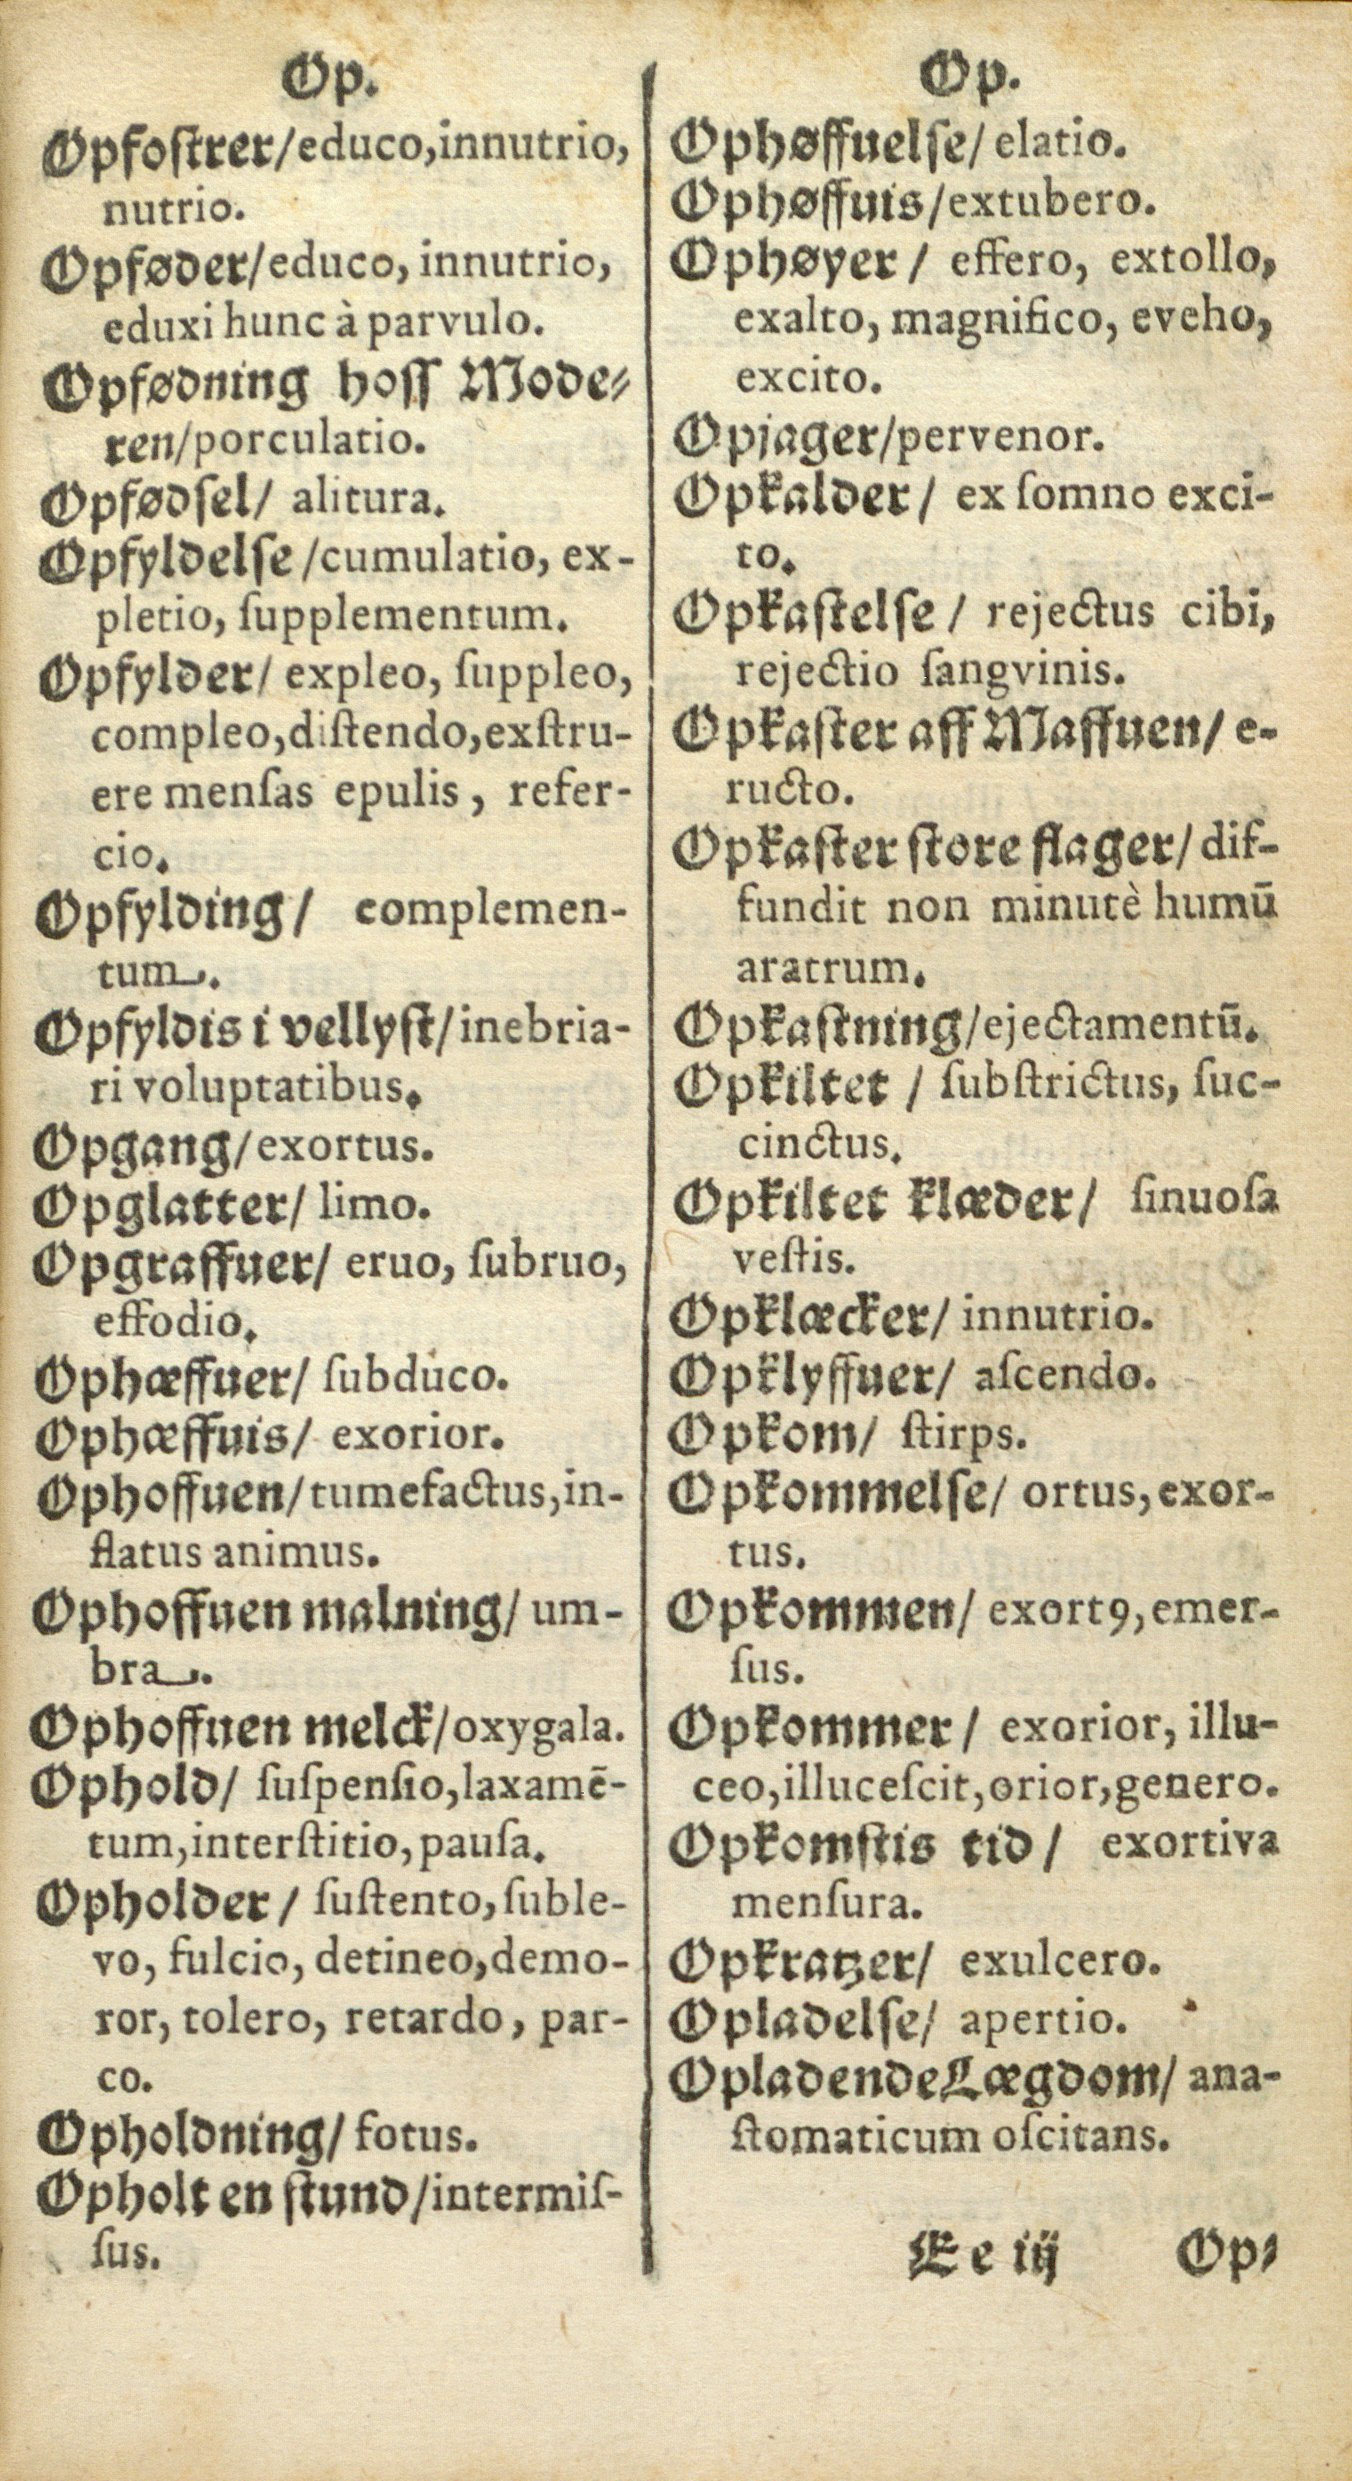 Op.
Opfoſtrer/educo,innutrio,
nutrio.
Opføder/educo, innutrio,
eduxi hunc à parvulo.
Opfødning hoſſ Mode⸗
ren/porculatio.
Opfødſel/ alitura.
Opfyldelſe/cumulatio, ex-
pletio, ſupplementum.
Opfylder/ expleo, ſuppleo,
compleo,diſtendo,exſtru-
ere menſas epulis, refer-
cio.
Opfylding/ complemen-
tum.
Opfyldis i vellyſt/inebria-
ri voluptatibus.
Opgang/exortus.
Opglatter/ limo.
Opgraffuer/ eruo, ſubruo,
effodio.
Ophæffuer/ ſubduco.
Ophæffuis/ exorior.
Ophoffuen/tumefactus,in-
flatus animus.
Ophoffuen malning/ um-
bra.
Ophoffuen melck/oxygala.
Ophold/ ſuſpenſio,laxamē-
tum,interſtitio,pauſa.
Opholder/ ſuſtento,ſuble-
vo, fulcio, detineo,demo-
ror, tolero, retardo, par-
co.
Opholdning/ fotus.
Opholt en ſtund/intermiſ-
ſus.
Op.
Ophøffuelſe/ elatio.
Ophøffuis/extubero.
Ophøyer/ effero, extollo,
exalto, magnifico, eveho,
excito.
Opjager/pervenor.
Opkalder/ ex ſomno exci-
to.
Opkaſtelſe/ rejectus cibi,
rejectio ſangvinis.
Opkaſter aff Maffuen/ e-
ructo.
Opkaſter ſtore flager/ dif-
fundit non minutè humū
aratrum.
Opkaſtning/ejectamentū.
Opkiltet/ ſubſtrictus, ſuc-
cinctus.
Opkiltet klæder/ ſinuoſa
veſtis.
Opklæcker/ innutrio.
Opklyffuer/ aſcendo.
Opkom/ ſtirps.
Opkommelſe/ ortus,exor-
tus.
Opkommen/ exortꝰ,emer-
ſus.
Opkommer/ exorior, illu-
ceo,illuceſcit,orior,genero.
Opkomſtis tid/ exortiva
menſura.
Opkratzer/ exulcero.
Opladelſe/ apertio.
OpladendeLægdom/ ana-
ſtomaticum oſcitans.
Ee iij Op⸗